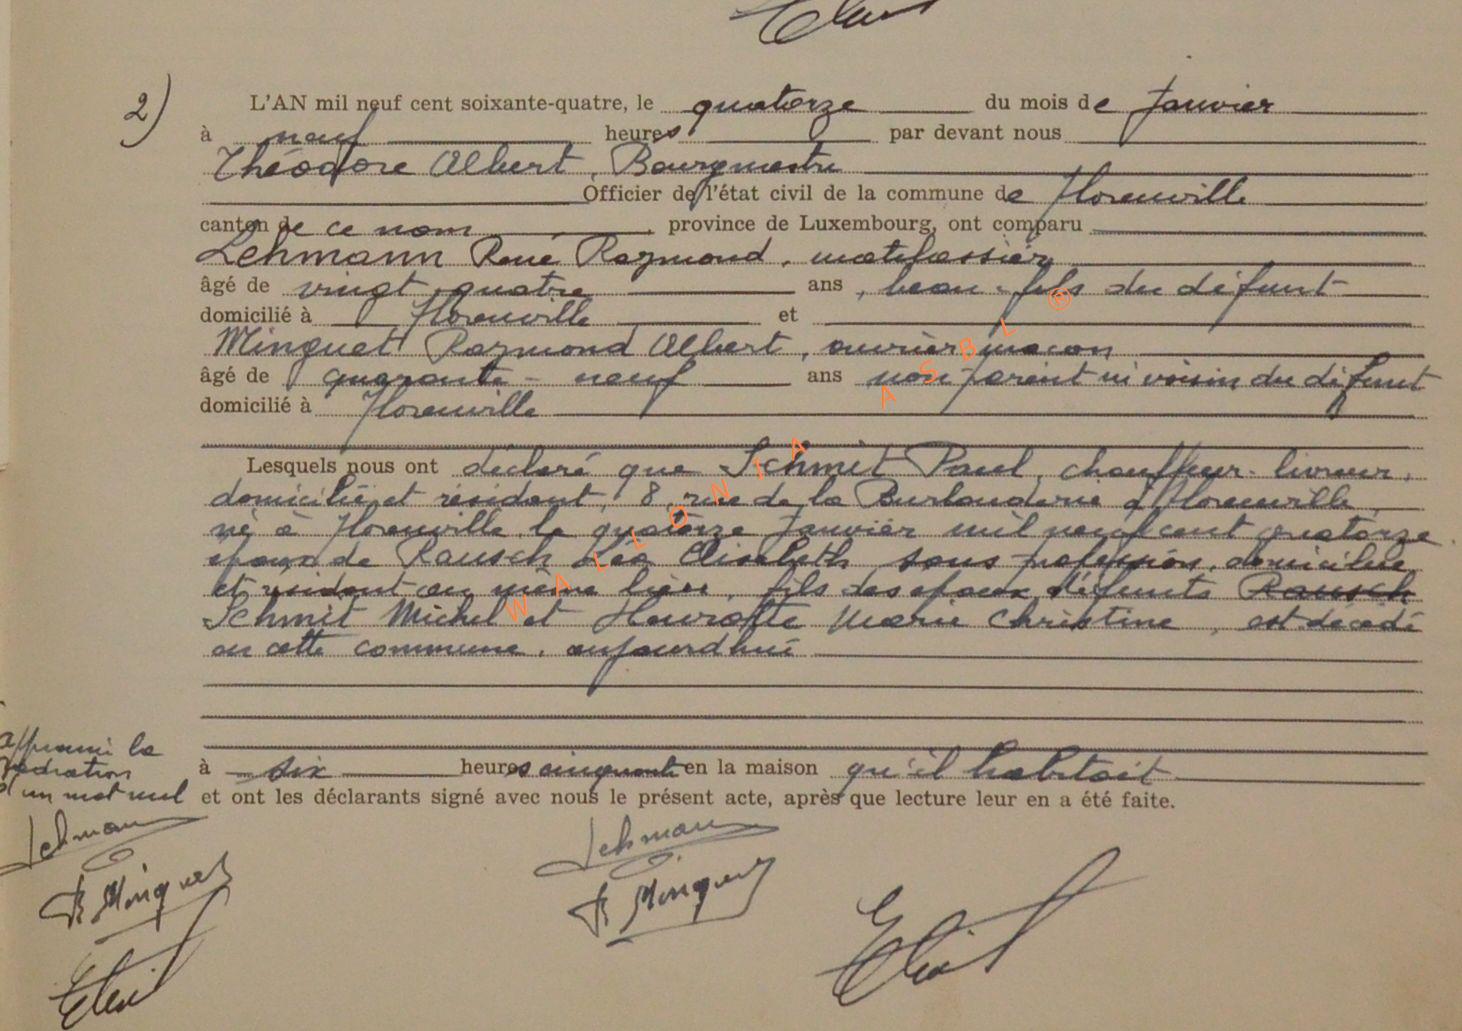 2)
L'AN mil neuf cent soixante-quatre, le quatorze du mois de Janvier
à neuf heures par devant nous
Théodore Albert, Bourgmestre
Officier de l'état civil de la commune de Florenville
canton de ce nom, province de Luxembourg, ont comparu
Lehmann René Raymond, matelassier
âgé de vingt quatre ans, beau-fils du défunt
domicilié à Florenville et
Minguet Raymond Albert, ouvrier maçon
âgé de quarante-neuf ans non parent ni voisin du défunt
domicilié à Florenville
Lesquels nous ont déclaré que Schmit Paul, chauffeur-livreur,
domicilié et résidant, 8, rue de la à Florenville
né à Florenville le quatorze Janvier mil neuf cent quatorze
époux de Rausch Léa Elisabeth sans profession, domiciliée
et résidant au même lieu, fils des époux défunts Rausch
Schmit Michel et Marie Christine, est décédé
en cette commune, aujourd'hui
à six heures cinquante en la maison qu'il habitait
et ont les déclarants signé avec nous le présent acte, après que lecture leur en a été faite.
Approuvé la
radiation
d'un mot nul
Lehmann
R Minguet
Lehmann
R Minguet
WALLONIA ASBL ®